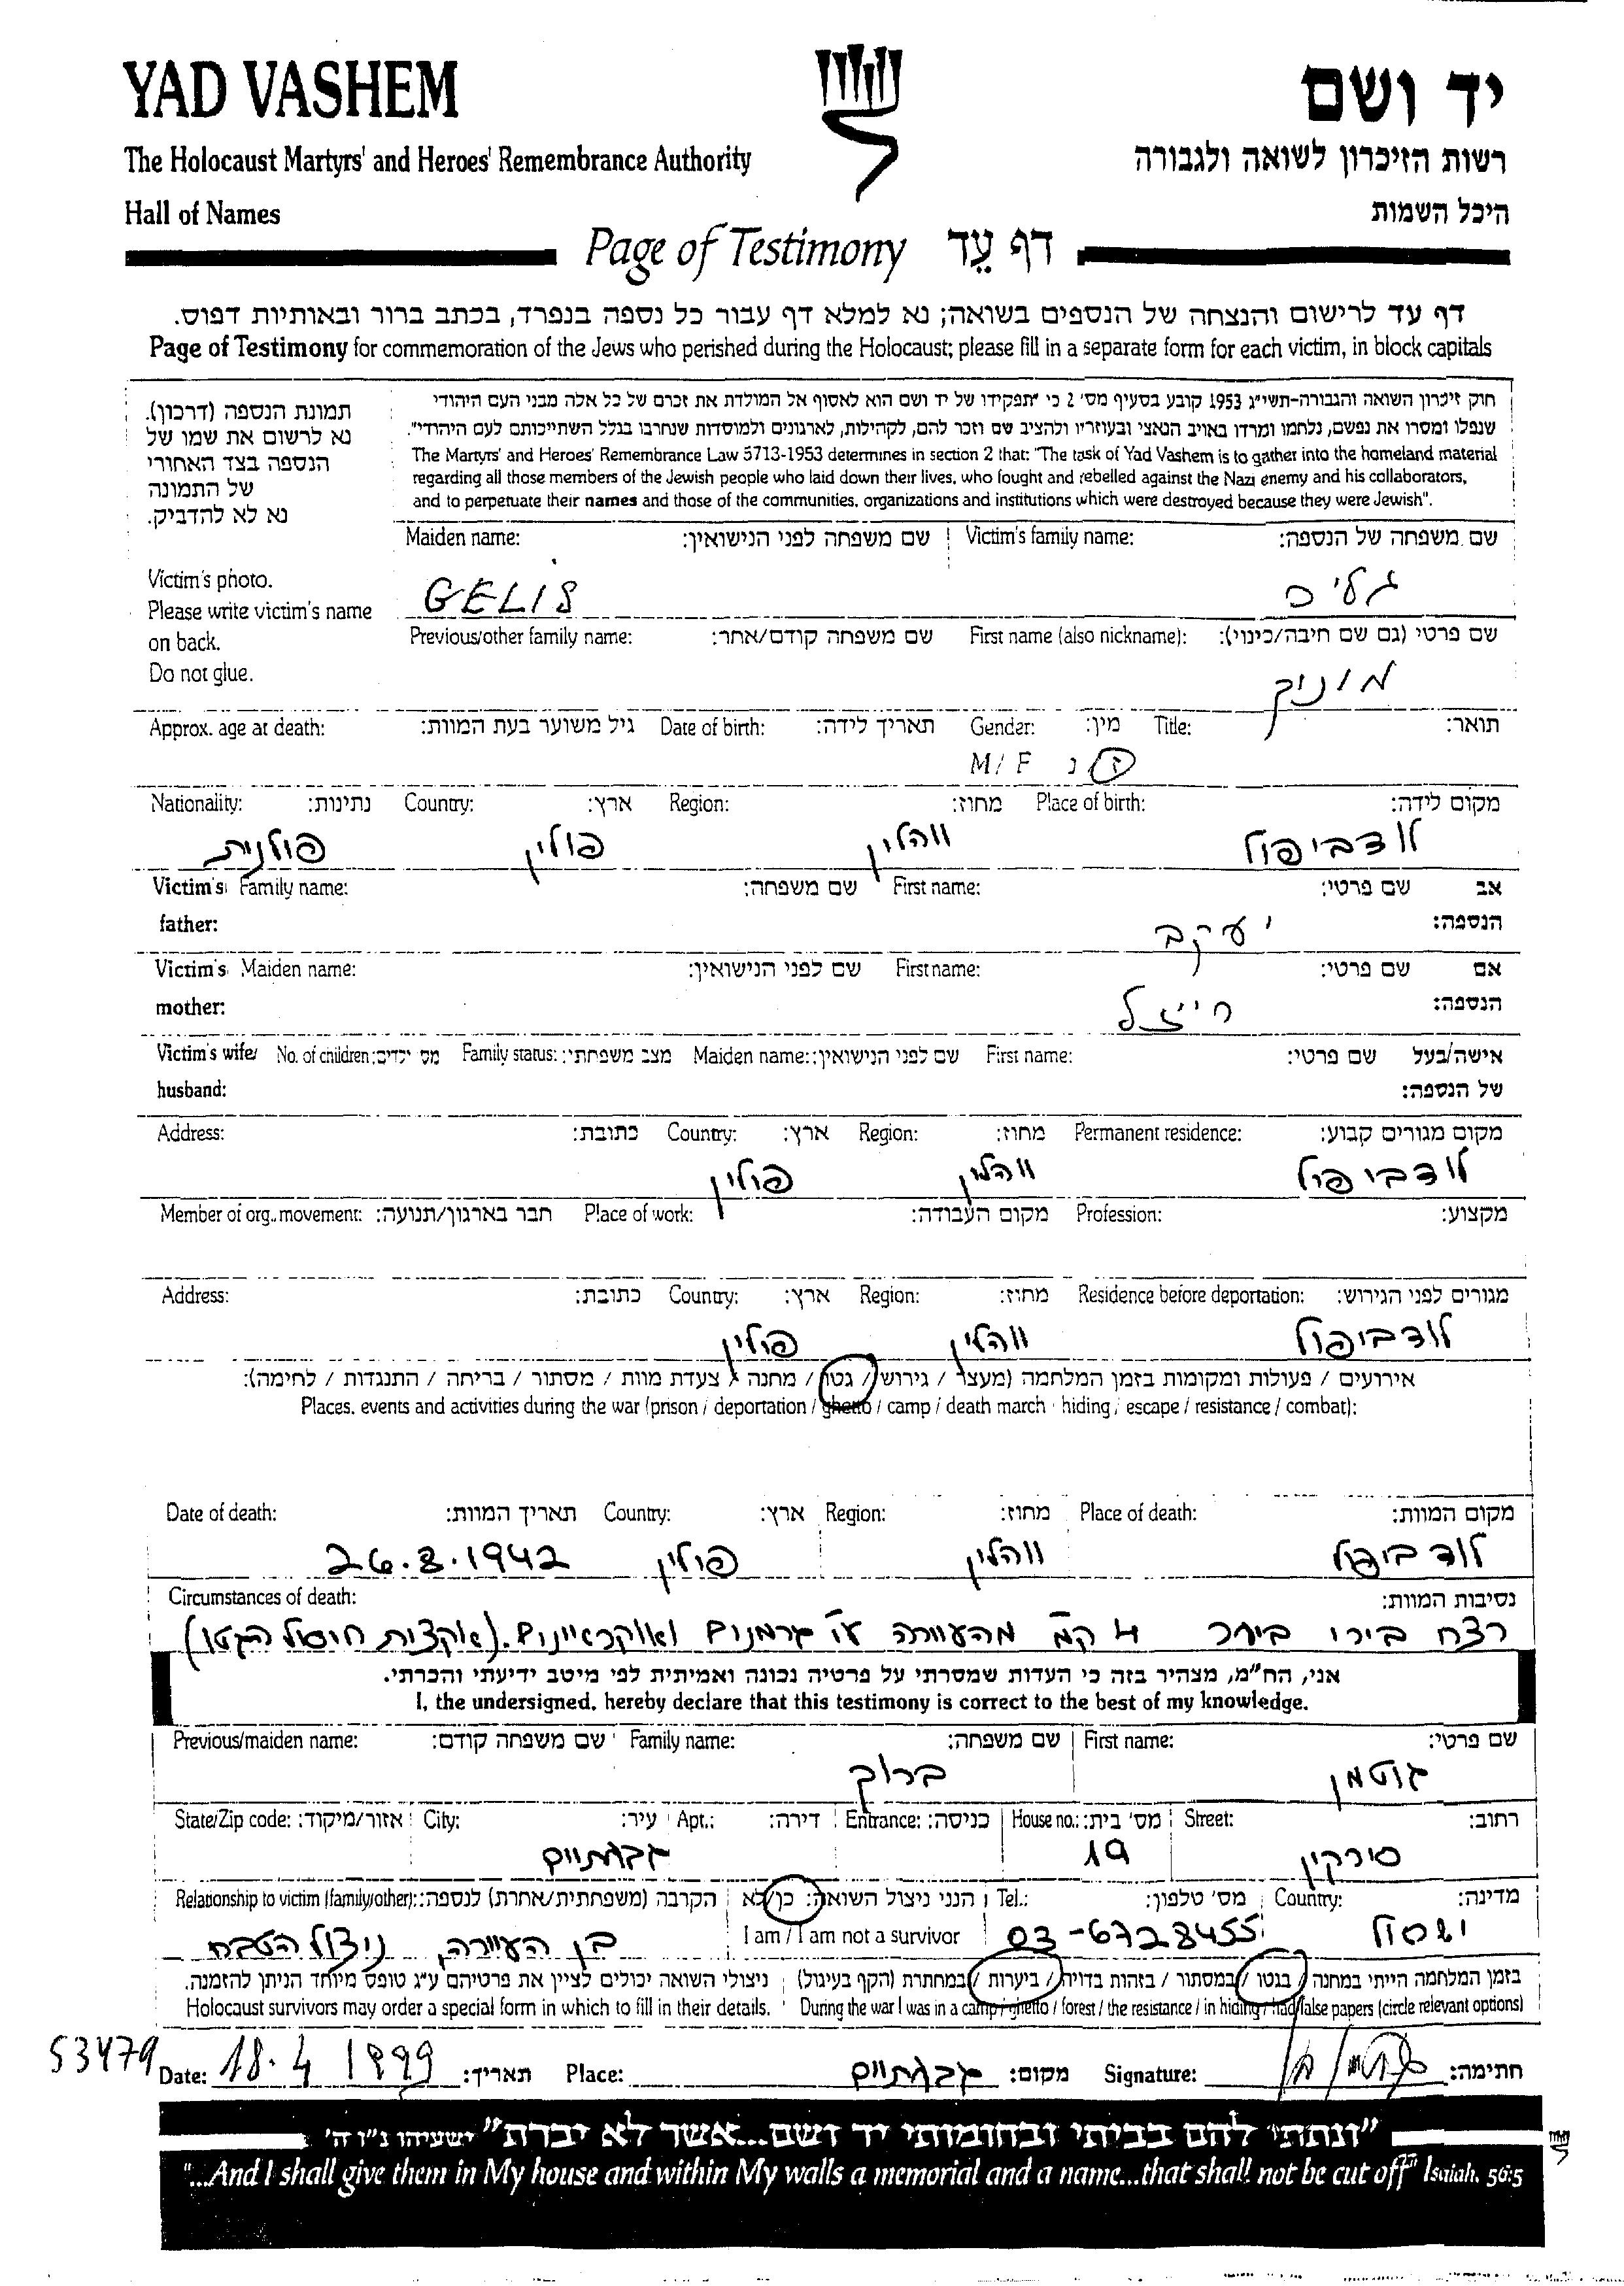 YAD VASHEM
יד ושם
The Holocaust Martyrs' and Heroes' Remembrance Authority
רשות הזיכרון לשואה ולגבורה
Hall of Names
היכל השמות
Page of Testimony דף עֵד
דף עד לרישום והנצחה של הנספים בשואה; נא למלא דף עבור כל נספה בנפרד, בכתב ברור ובאותיות דפוס.
Page of Testimony for commemoration of the Jews who perished during the Holocaust; please fill in a separate form for each victim, in block capitals
תמונת הנספה (דרכון).
נא לרשום את שמו של
הנספה בצד האחורי
של התמונה
נא לא להדביק.
Victim's photo.
Please write victim's name
on back.
Do not glue.
חוק זיכרון השואה והגבורה-תשי"ג 1953 קובע בסעיף מס' 2 כי "תפקידו של יד ושם הוא לאסוף אל המולדת את זכרם של כל אלה מבני העם היהודי
שנפלו ומסרו את נפשם, נלחמו ומרדו באויב הנאצי ובעוזריו ולהציב שם וזכר להם, לקהילות, לארגונים ולמוסדות שנחרבו בגלל השתייכותם לעם היהודי".
The Martyrs' and Heroes' Remembrance Law 5713-1953 determines in section 2 that: "The task of Yad Vashem is to gather into the homeland material
regarding all those members of the Jewish people who laid down their lives, who fought and rebelled against the Nazi enemy and his collaborators,
and to perpetuate their names and those of the communities, organizations and institutions which were destroyed because they were Jewish".
Maiden name: שם משפחה לפני הנישואין: Victim's family name: שם משפחה של הנספה:
GELIS גליס
Previous/other family name: שם משפחה קודם/אחר: First name (also nickname): שם פרטי (גם שם חיבה/כינוי):
מוניק
Approx. age at death: גיל משוער בעת המוות: Date of birth: תאריך לידה: Gender: מין: Title: תואר:
M/F ז נ
Nationality: נתינות: Country: ארץ: Region: מחוז: Place of birth: מקום לידה:
פולנית פולין ווהלין לודביפול
Victim's Family name: שם משפחה: First name: שם פרטי: אב
father: הנספה:
יעקב
Victim's Maiden name: שם לפני הנישואין: First name: שם פרטי: אם
mother: הנספה:
חייזל
Victim's wife/ No. of children: מס' ילדים: Family status: מצב משפחתי: Maiden name: שם לפני הנישואין: First name: שם פרטי: אישה/בעל
husband: של הנספה:
Address: כתובת: Country: ארץ: Region: מחוז: Permanent residence: מקום מגורים קבוע:
פולין ווהלין לודביפול
Member of org./movement: חבר בארגון/תנועה: Place of work: מקום העבודה: Profession: מקצוע:
Address: כתובת: Country: ארץ: Region: מחוז: Residence before deportation: מגורים לפני הגירוש:
פולין ווהלין לודביפול
אירועים / פעולות ומקומות בזמן המלחמה (מעצר / גירוש / גטו / מחנה / צעדת מוות / מסתור / בריחה / התנגדות / לחימה):
Places, events and activities during the war (prison / deportation / ghetto / camp / death march / hiding / escape / resistance / combat):
Date of death: תאריך המוות: Country: ארץ: Region: מחוז: Place of death: מקום המוות:
26.8.1942 פולין ווהלין לודביפול
Circumstances of death: נסיבות המוות:
רצח בירי ביער 4 ק"מ מהעיירה ע"י גרמנים ואוקראיינים. (אקצית חיסול הגטו)
אני, הח"מ, מצהיר בזה כי העדות שמסרתי על פרטיה נכונה ואמיתית לפי מיטב ידיעתי והכרתי.
I, the undersigned, hereby declare that this testimony is correct to the best of my knowledge.
Previous/maiden name: שם משפחה קודם: Family name: שם משפחה: First name: שם פרטי:
ברוק גוטמן
State/Zip code: אזור/מיקוד: City: עיר: Apt.: דירה: Entrance: כניסה: House no.: מס' בית: Street: רחוב:
גבעתיים 19 סירקין
Relationship to victim (family/other): הקרבה (משפחתית/אחרת) לנספה: הנני ניצול השואה: כן/לא Tel.: מס' טלפון: Country: מדינה:
בן העיירה, ניצול הטבח I am / I am not a survivor 03-6728455 ישראל
בזמן המלחמה הייתי במחנה / בגטו / במסתור / בזהות בדויה / ביערות / במחתרת (הקף בעיגול) ניצולי השואה יכולים לציין את פרטיהם ע"ג טופס מיוחד הניתן להזמנה.
Holocaust survivors may order a special form in which to fill in their details. During the war I was in a camp / ghetto / forest / the resistance / in hiding / had false papers (circle relevant options)
53479 Date: 18.4 1999 תאריך: Place: גבעתיים מקום: Signature: חתימה:
"ונתתי להם בביתי ובחומותי יד ושם...אשר לא יכרת" ישעיהו נ"ו ה'
"...And I shall give them in My house and within My walls a memorial and a name...that shall not be cut off" Isaiah, 56:5